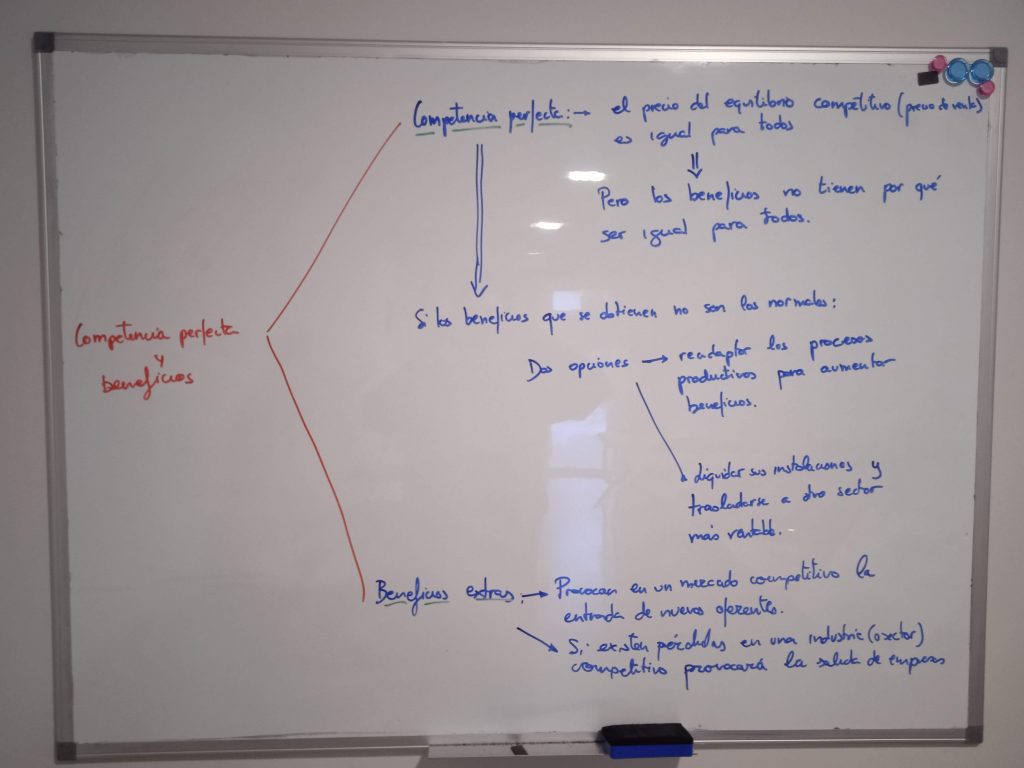 Competencia perfecta
y
beneficios
Competencia perfecta: → el precio del equilibrio competitivo (precio de venta)
es igual para todos
Pero los beneficios no tienen por qué
ser igual para todos.
Si los beneficios que se obtienen no son los normales:
Dos opciones → readaptar los procesos
productivos para aumentar
beneficios.
Liquidar sus instalaciones y
trasladarse a otro sector
más rentable.
Beneficios extras. → Provocan en un mercado competitivo la
entrada de nuevos oferentes.
Si existen pérdidas en una industria (o sector)
competitivo provocará la salida de empresas